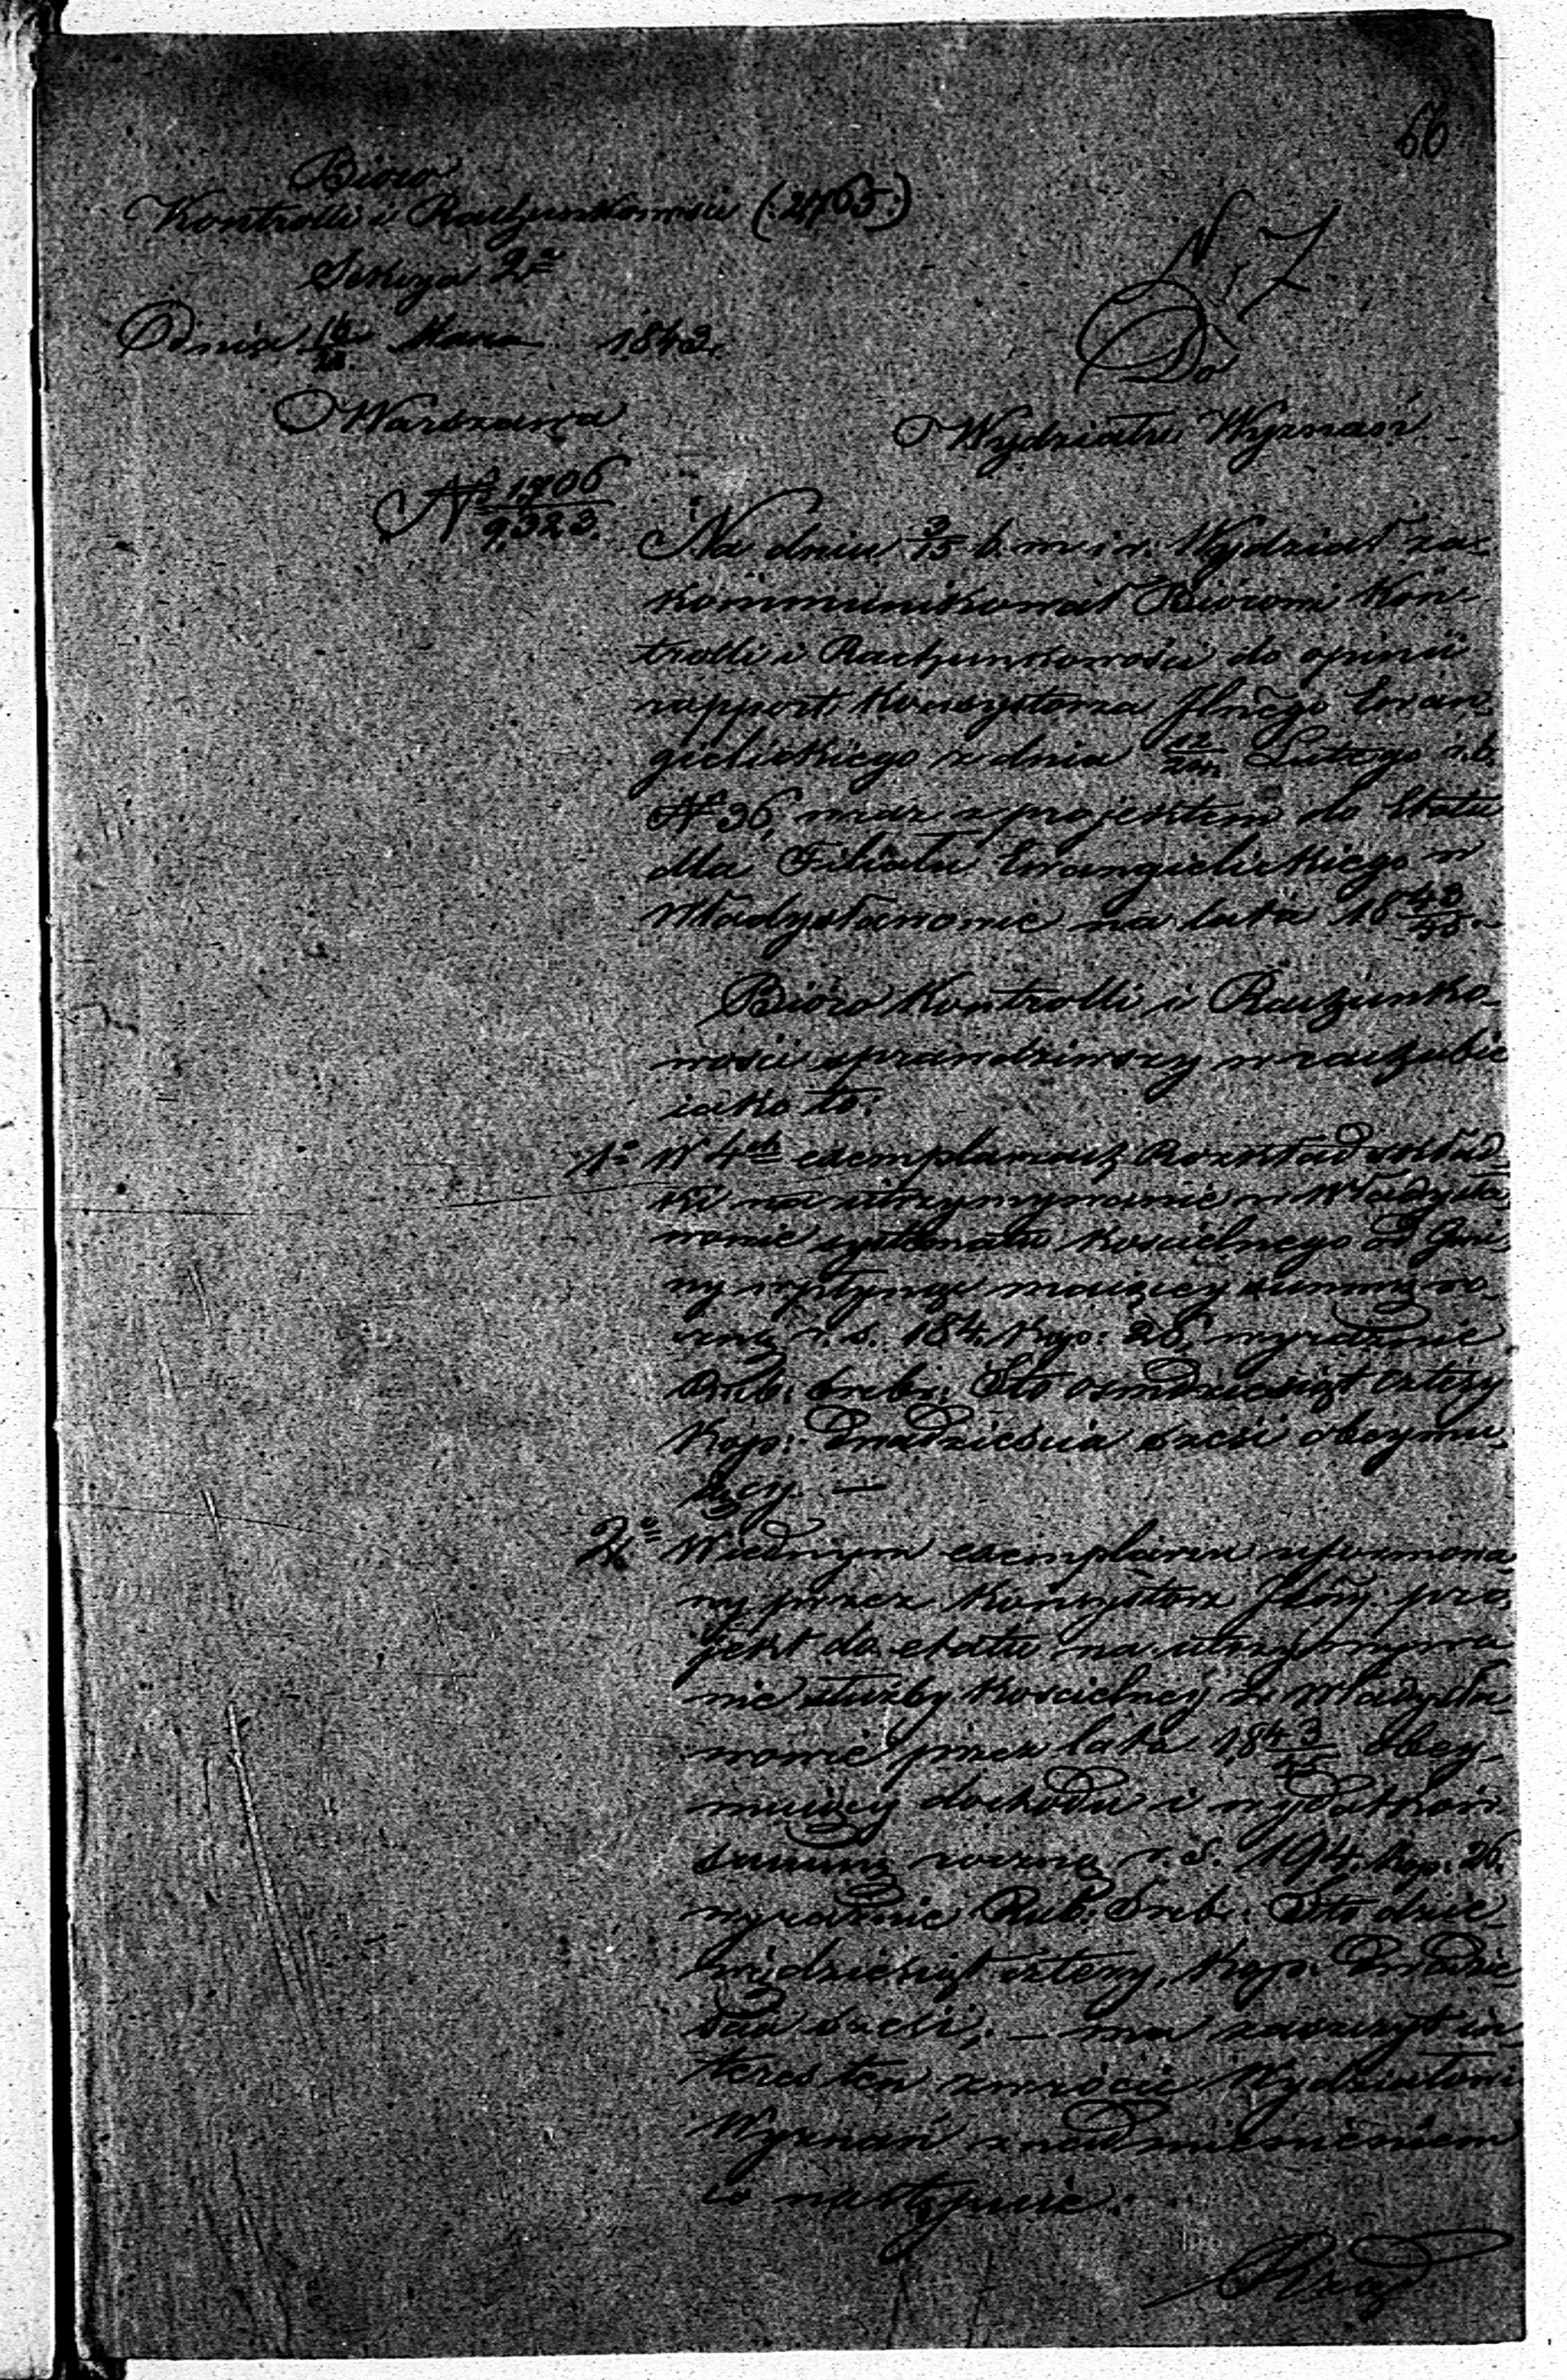 66
Bióro
Kontrolli i Rachunkowości (2,763.)
Sekcya 2ª
Dnia 16/28 Marca 1843.
Warszawa
№ 1706/9,323.
N. 7
Do
Wydziału Wyznań
Na dniu 3/15 b. m. i r. Wydział za-
kommunikował Biórowi Kon-
trolli i Rachunkowości do opinii
rapport Konsystorza Jlnego Ewan-
gielickiego z dnia Lutego r. b.
№ 36, wraz z projektem do Etatu
dla Filiału Ewangielickiego w
Władysławowie na lata 1843/45.-
Bióro Kontrolli i Rachunko-
wości sprawdziwszy w rachubie
iako to:
1° W 4ch exemplarzach Rozkład skład-
ki na utrzymywanie w Władysła-
wowie systematu kościelnego od Gmi-
ny wpłynąć maiącey summę ro-
czną r. s. 184. kop: 26, wyraźnie
Rub: Srebr: Sto osmdziesiąt cztery
Kop: dwadzieścia sześć obeymu-
iący. —
2° W iednym exemplarzu uformowa-
ny przez Konsystorz Jlny pro-
jekt do etatu na utrzymywa-
nie służby Kościelney w Władysła-
wowie przez lata 1843/45 obey-
muiący dochodu i wydatków
summę roczną r. s. 194. kop: 26.
wyraźnie Rub: Sreb: Sto dzie-
więdziesiąt cztery, Kop: dwadzie-
ścia sześć; — ma zaszczyt in-
teres ten zwrócić Wydziałowi
Wyznań z nadmienieniem
co następuie: